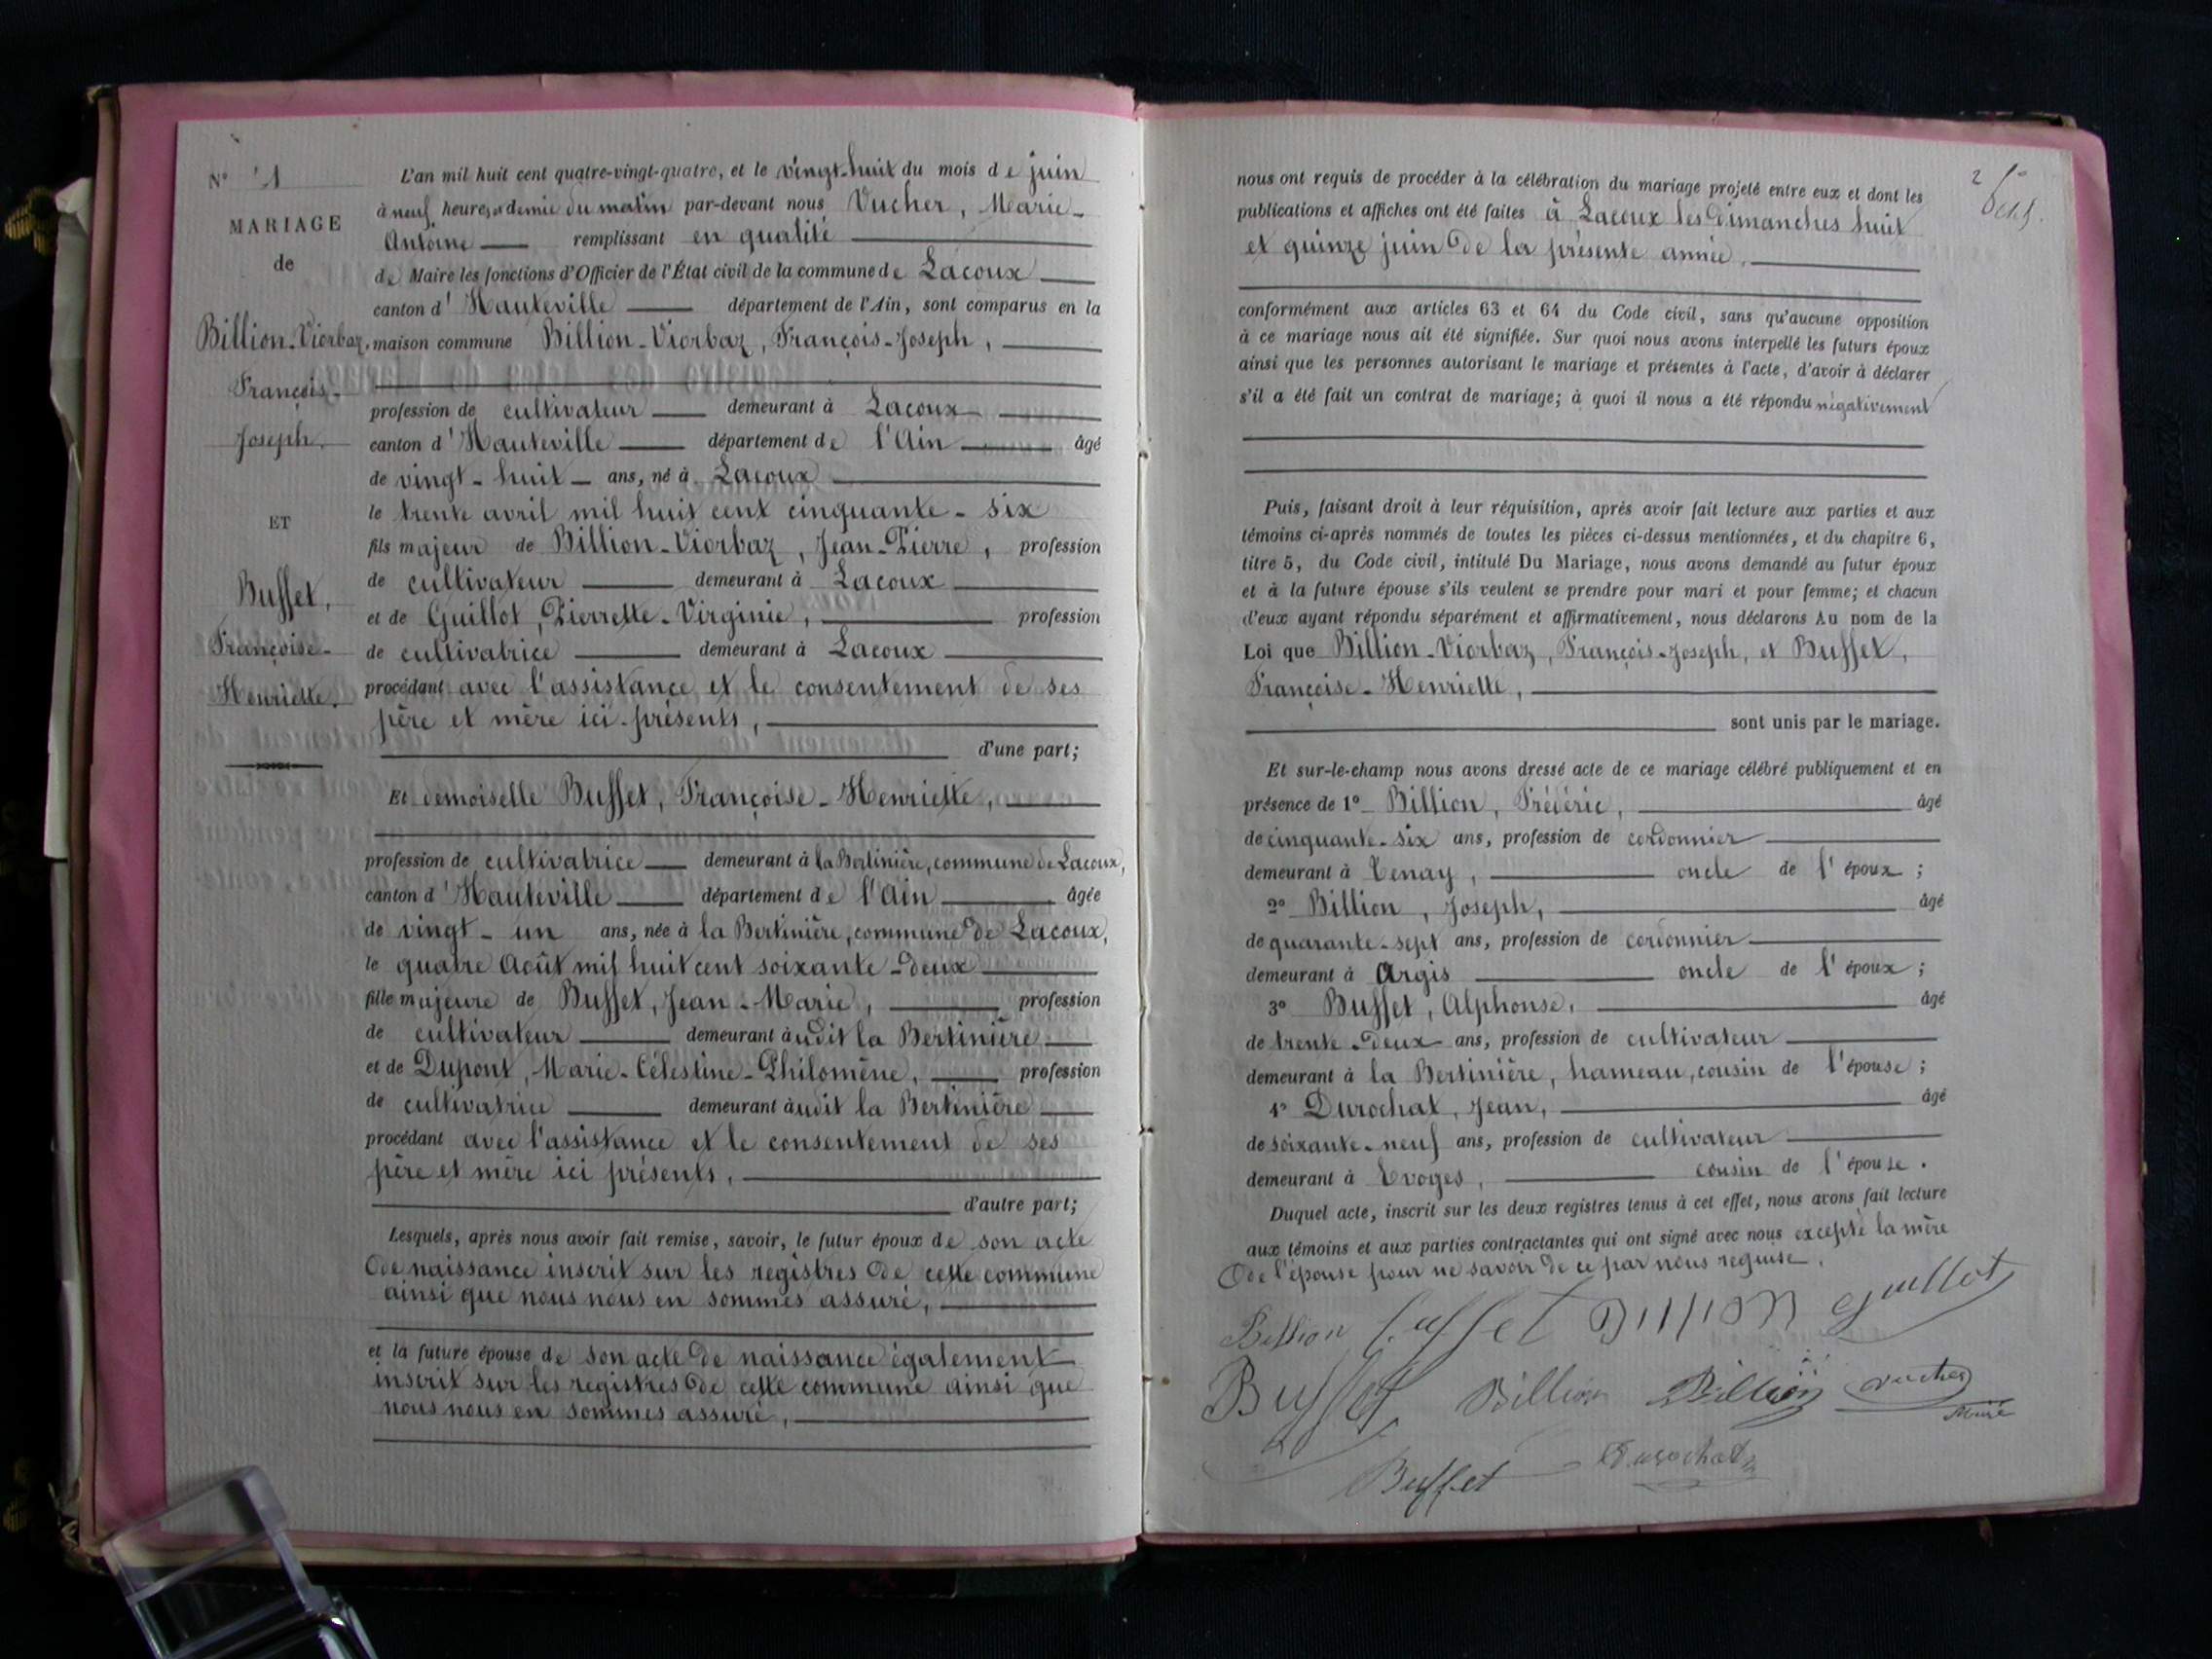 N° 1
MARIAGE
de
Billion-Viorbaz,
François-
Joseph.
ET
Buffet,
Françoise-
Henriette.
L'an mil huit cent quatre-vingt-quatre, et le vingt-huit du mois de juin
à neuf heures et demie du matin par-devant nous Vucher, Marie-
Antoine remplissant en qualité
de Maire les fonctions d'Officier de l'État civil de la commune de Lacoux
canton d'Hauteville département de l'Ain, sont comparus en la
maison commune Billion-Viorbaz, François-Joseph,
profession de cultivateur demeurant à Lacoux
canton d'Hauteville département de l'Ain âgé
de vingt-huit ans, né à Lacoux
le trente avril mil huit cent cinquante-six
fils majeur de Billion-Viorbaz, Jean-Pierre, profession
de cultivateur demeurant à Lacoux
et de Guillot, Pierrette-Virginie, profession
de cultivatrice demeurant à Lacoux
procédant avec l'assistance et le consentement de ses
père et mère ici-présents,
d'une part;
Et demoiselle Buffet, Françoise-Henriette,
profession de cultivatrice demeurant à la Bertinière, commune de Lacoux,
canton d'Hauteville département de l'Ain âgée
de vingt-un ans, née à la Bertinière, commune de Lacoux,
le quatre Août mil huit cent soixante-deux
fille majeure de Buffet, Jean-Marie, profession
de cultivateur demeurant audit la Bertinière
et de Dupont, Marie-Célestine-Philomène, profession
de cultivatrice demeurant audit la Bertinière
procédant avec l'assistance et le consentement de ses
père et mère ici présents,
d'autre part;
Lesquels, après nous avoir fait remise, savoir, le futur époux de son acte
de naissance inscrit sur les registres de cette commune
ainsi que nous nous en sommes assuré,
et la future épouse de son acte de naissance également
inscrit sur les registres de cette commune ainsi que
nous nous en sommes assuré,
2
nous ont requis de procéder à la célébration du mariage projeté entre eux et dont les
publications et affiches ont été faites à Lacoux les dimanches huit
et quinze juin de la présente année,
conformément aux articles 63 et 64 du Code civil, sans qu'aucune opposition
à ce mariage nous ait été signifiée. Sur quoi nous avons interpellé les futurs époux
ainsi que les personnes autorisant le mariage et présentes à l'acte, d'avoir à déclarer
s'il a été fait un contrat de mariage; à quoi il nous a été répondu négativement
Puis, faisant droit à leur réquisition, après avoir fait lecture aux parties et aux
témoins ci-après nommés de toutes les pièces ci-dessus mentionnées, et du chapitre 6,
titre 5, du Code civil, intitulé Du Mariage, nous avons demandé au futur époux
et à la future épouse s'ils veulent se prendre pour mari et pour femme; et chacun
d'eux ayant répondu séparément et affirmativement, nous déclarons Au nom de la
Loi que Billion-Viorbaz, François-Joseph, et Buffet,
Françoise-Henriette,
sont unis par le mariage.
Et sur-le-champ nous avons dressé acte de ce mariage célébré publiquement et en
présence de 1° Billion, Frédéric, âgé
de cinquante-six ans, profession de cordonnier
demeurant à Tenay, oncle de l'époux;
2° Billion, Joseph, âgé
de quarante-sept ans, profession de cordonnier
demeurant à Argis oncle de l'époux;
3° Buffet, Alphonse, âgé
de trente-deux ans, profession de cultivateur
demeurant à la Bertinière, hameau, cousin de l'épouse;
4° Durochat, Jean, âgé
de soixante-neuf ans, profession de cultivateur
demeurant à Evoges, cousin de l'épouse.
Duquel acte, inscrit sur les deux registres tenus à cet effet, nous avons fait lecture
aux témoins et aux parties contractantes qui ont signé avec nous excepté la mère
de l'épouse pour ne savoir de ce par nous requise.
Billion Buffet Billion Guillot
Buffet Billion Billion Vucher
Maire
Buffet Durochat